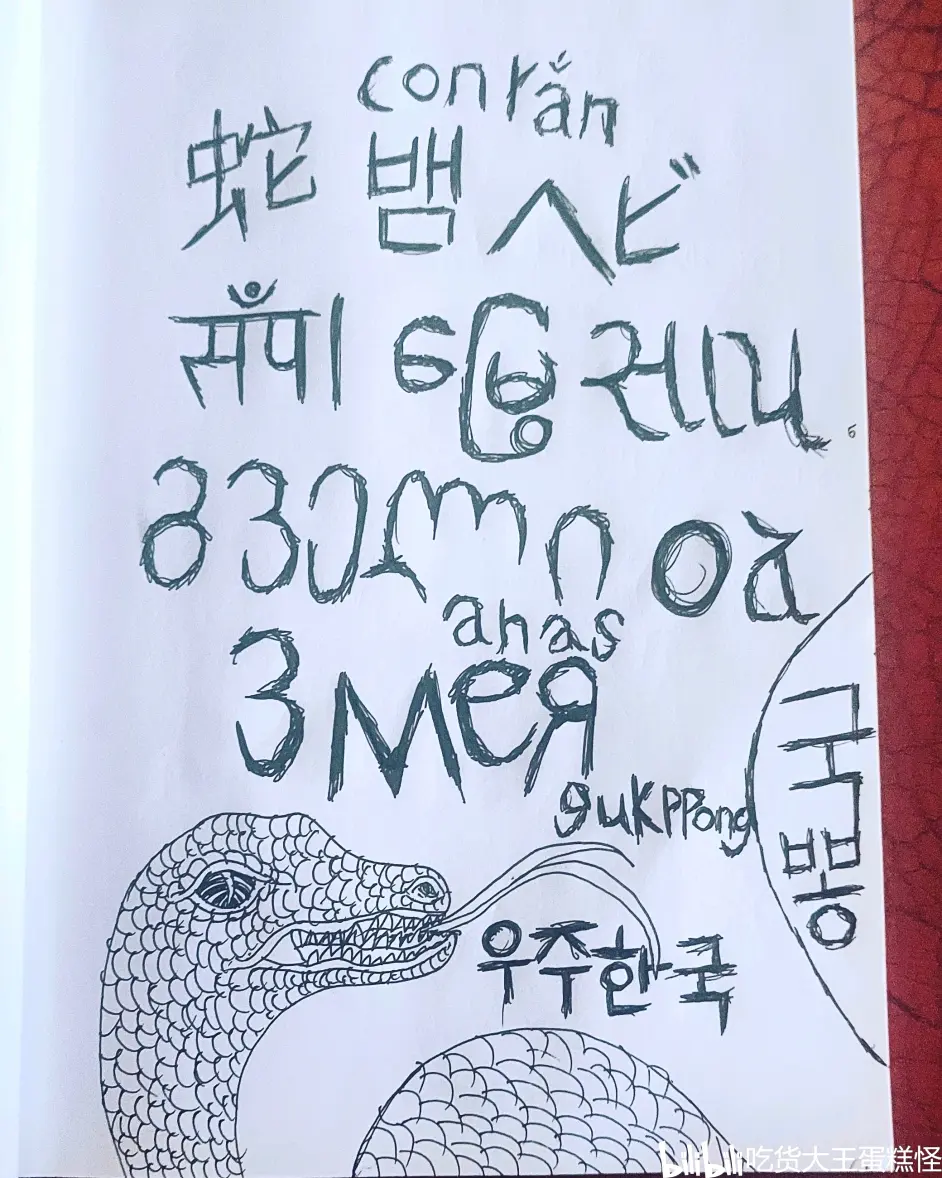 con rắn
蛇 뱀 ヘビ
सँपा မြွေ સાપ
გველი օձ
ahas
змея
gukppong
국뽕
우주한국
bilibili 吃货大王蛋糕怪